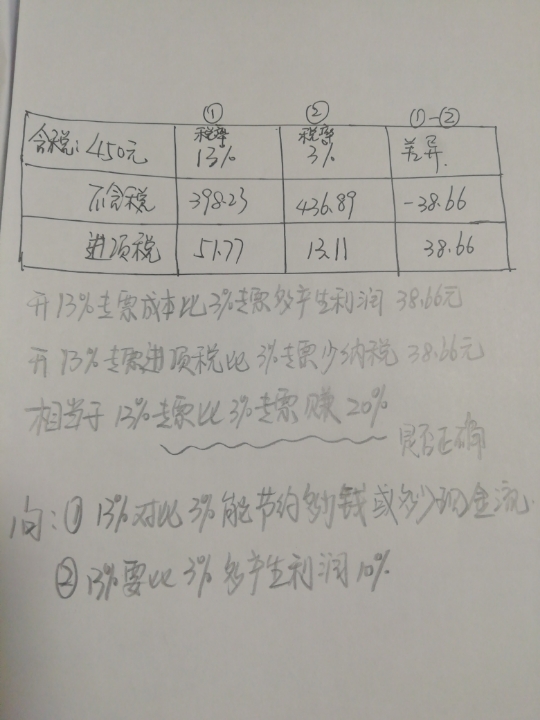 ① ② ①-②
含税:450元 税率13% 税率3% 差异.
不含税 398.23 436.89 -38.66
进项税 51.77 13.11 38.66
开13%专票成本比3%专票多产生利润 38.66元
开13%专票进项税比3%专票少纳税 38.66元
相当于13%专票比3%专票赚20%
是否正确
问:① 13%对比3%能节约多少钱或多少现金流.
② 13%要比3%多产生利润10%